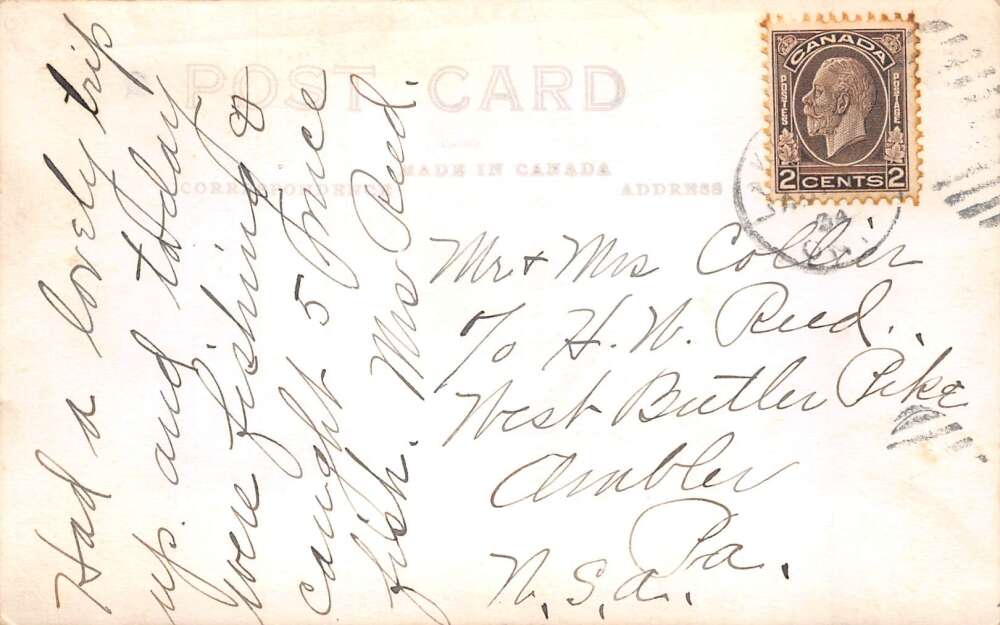 POST CARD
MADE IN CANADA
CORRESPONDENCE
ADDRESS
CANADA
POSTES
POSTAGE
2 CENTS 2
Had a lovely trip
up. and today
were fishing &
caught 5 nice
fish. Mrs Reed.
Mr + Mrs Collier
℅ H. W. Reed.
West Butler Pike
Ambler
Pa.
U.S.A.